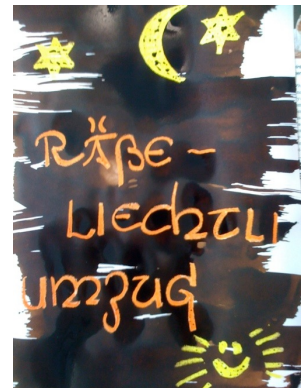 RÄBE –
LIECHTLI
UMZUG